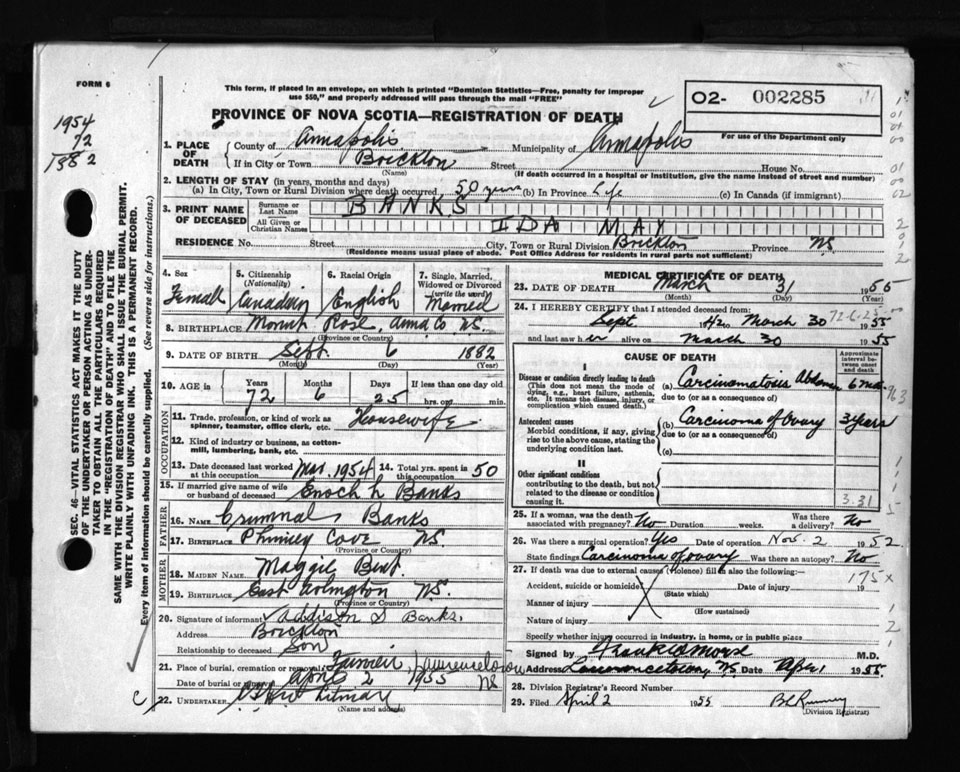 FORM 6
This form, if placed in an envelope, on which is printed "Dominion Statistics—Free, penalty for improper
use $50," and properly addressed will pass through the mail "FREE"
O2- 002285
For use of the Department only
1954
72
1882
PROVINCE OF NOVA SCOTIA—REGISTRATION OF DEATH
1. PLACE OF DEATH
County of Annapolis Municipality of Annapolis
If in City or Town Brickton Street House No.
(Name) (If death occurred in a hospital or institution, give the name instead of street and number)
2. LENGTH OF STAY (in years, months and days)
(a) In City, Town or Rural Division where death occurred 50 years (b) In Province Life (c) In Canada (if immigrant)
3. PRINT NAME OF DECEASED
Surname or Last Name BANKS
All Given or Christian Names IDA MAY
RESIDENCE No. Street City, Town or Rural Division Brickton Province NS
(Residence means usual place of abode. Post Office Address for residents in rural parts not sufficient)
4. Sex Female
5. Citizenship (Nationality) Canadian
6. Racial Origin English
7. Single, Married, Widowed or Divorced (write the word) Married
8. BIRTHPLACE Mount Rose, Anna Co NS.
(Province or Country)
9. DATE OF BIRTH Sept. 6 1882
(Month) (Day) (Year)
10. AGE in Years 72 Months 6 Days 25 If less than one day old hrs. or min.
OCCUPATION
11. Trade, profession, or kind of work as spinner, teamster, office clerk, etc. Housewife
12. Kind of industry or business, as cotton-mill, lumbering, bank, etc.
13. Date deceased last worked at this occupation Mar. 1954
14. Total yrs. spent in this occupation 50
15. If married give name of wife or husband of deceased Enoch L Banks
FATHER
16. NAME Banks
17. BIRTHPLACE Phinney Cove NS.
(Province or Country)
MOTHER
18. MAIDEN NAME Maggie Bent.
19. BIRTHPLACE East Arlington NS.
(Province or Country)
20. Signature of informant Addison S Banks.
Address Brickton
Relationship to deceased Son
21. Place of burial, cremation or removal Lawrencetown
Date of burial or removal April 2 1955 NS
22. UNDERTAKER
(Name and address)
MEDICAL CERTIFICATE OF DEATH
23. DATE OF DEATH March 31 1955
(Month) (Day) (Year)
24. I HEREBY CERTIFY that I attended deceased from:
Sept to March 30 1955
and last saw her alive on March 30 1955
CAUSE OF DEATH
Approximate interval between onset and death
I
Disease or condition directly leading to death
(This does not mean the mode of dying, e.g., heart failure, asthenia, etc. It means the disease, injury, or complication which caused death.)
(a) Carcinomatosis Abdomen 6 mos
due to (or as a consequence of)
Antecedent causes
Morbid conditions, if any, giving rise to the above cause, stating the underlying condition last.
(b) Carcinoma of ovary 3 years
due to (or as a consequence of)
(c)
II
Other significant conditions
contributing to the death, but not related to the disease or condition causing it.
3.31
25. If a woman, was the death associated with pregnancy? No Duration weeks. Was there a delivery? No
26. Was there a surgical operation? Yes Date of operation Nov. 2 1952
State findings Carcinoma of ovary Was there an autopsy? No
27. If death was due to external causes (violence) fill in also the following:—
175 x
Accident, suicide or homicide (State which) Date of injury 19
Manner of injury (How sustained)
Nature of injury
Specify whether injury occurred in industry, in home, or in public place
Signed by M.D.
Address Lawrencetown, NS Date Apr 1 1955
28. Division Registrar's Record Number
29. Filed April 2 1955
(Division Registrar)
SEC. 46—VITAL STATISTICS ACT MAKES IT THE DUTY
OF THE UNDERTAKER OR PERSON ACTING AS UNDER-
TAKER TO OBTAIN ALL THE PARTICULARS REQUIRED
IN THE "REGISTRATION OF DEATH" AND TO FILE THE
SAME WITH THE DIVISION REGISTRAR WHO SHALL ISSUE THE BURIAL PERMIT.
WRITE PLAINLY WITH UNFADING INK. THIS IS A PERMANENT RECORD.
Every item of information should be carefully supplied. (See reverse side for instructions.)